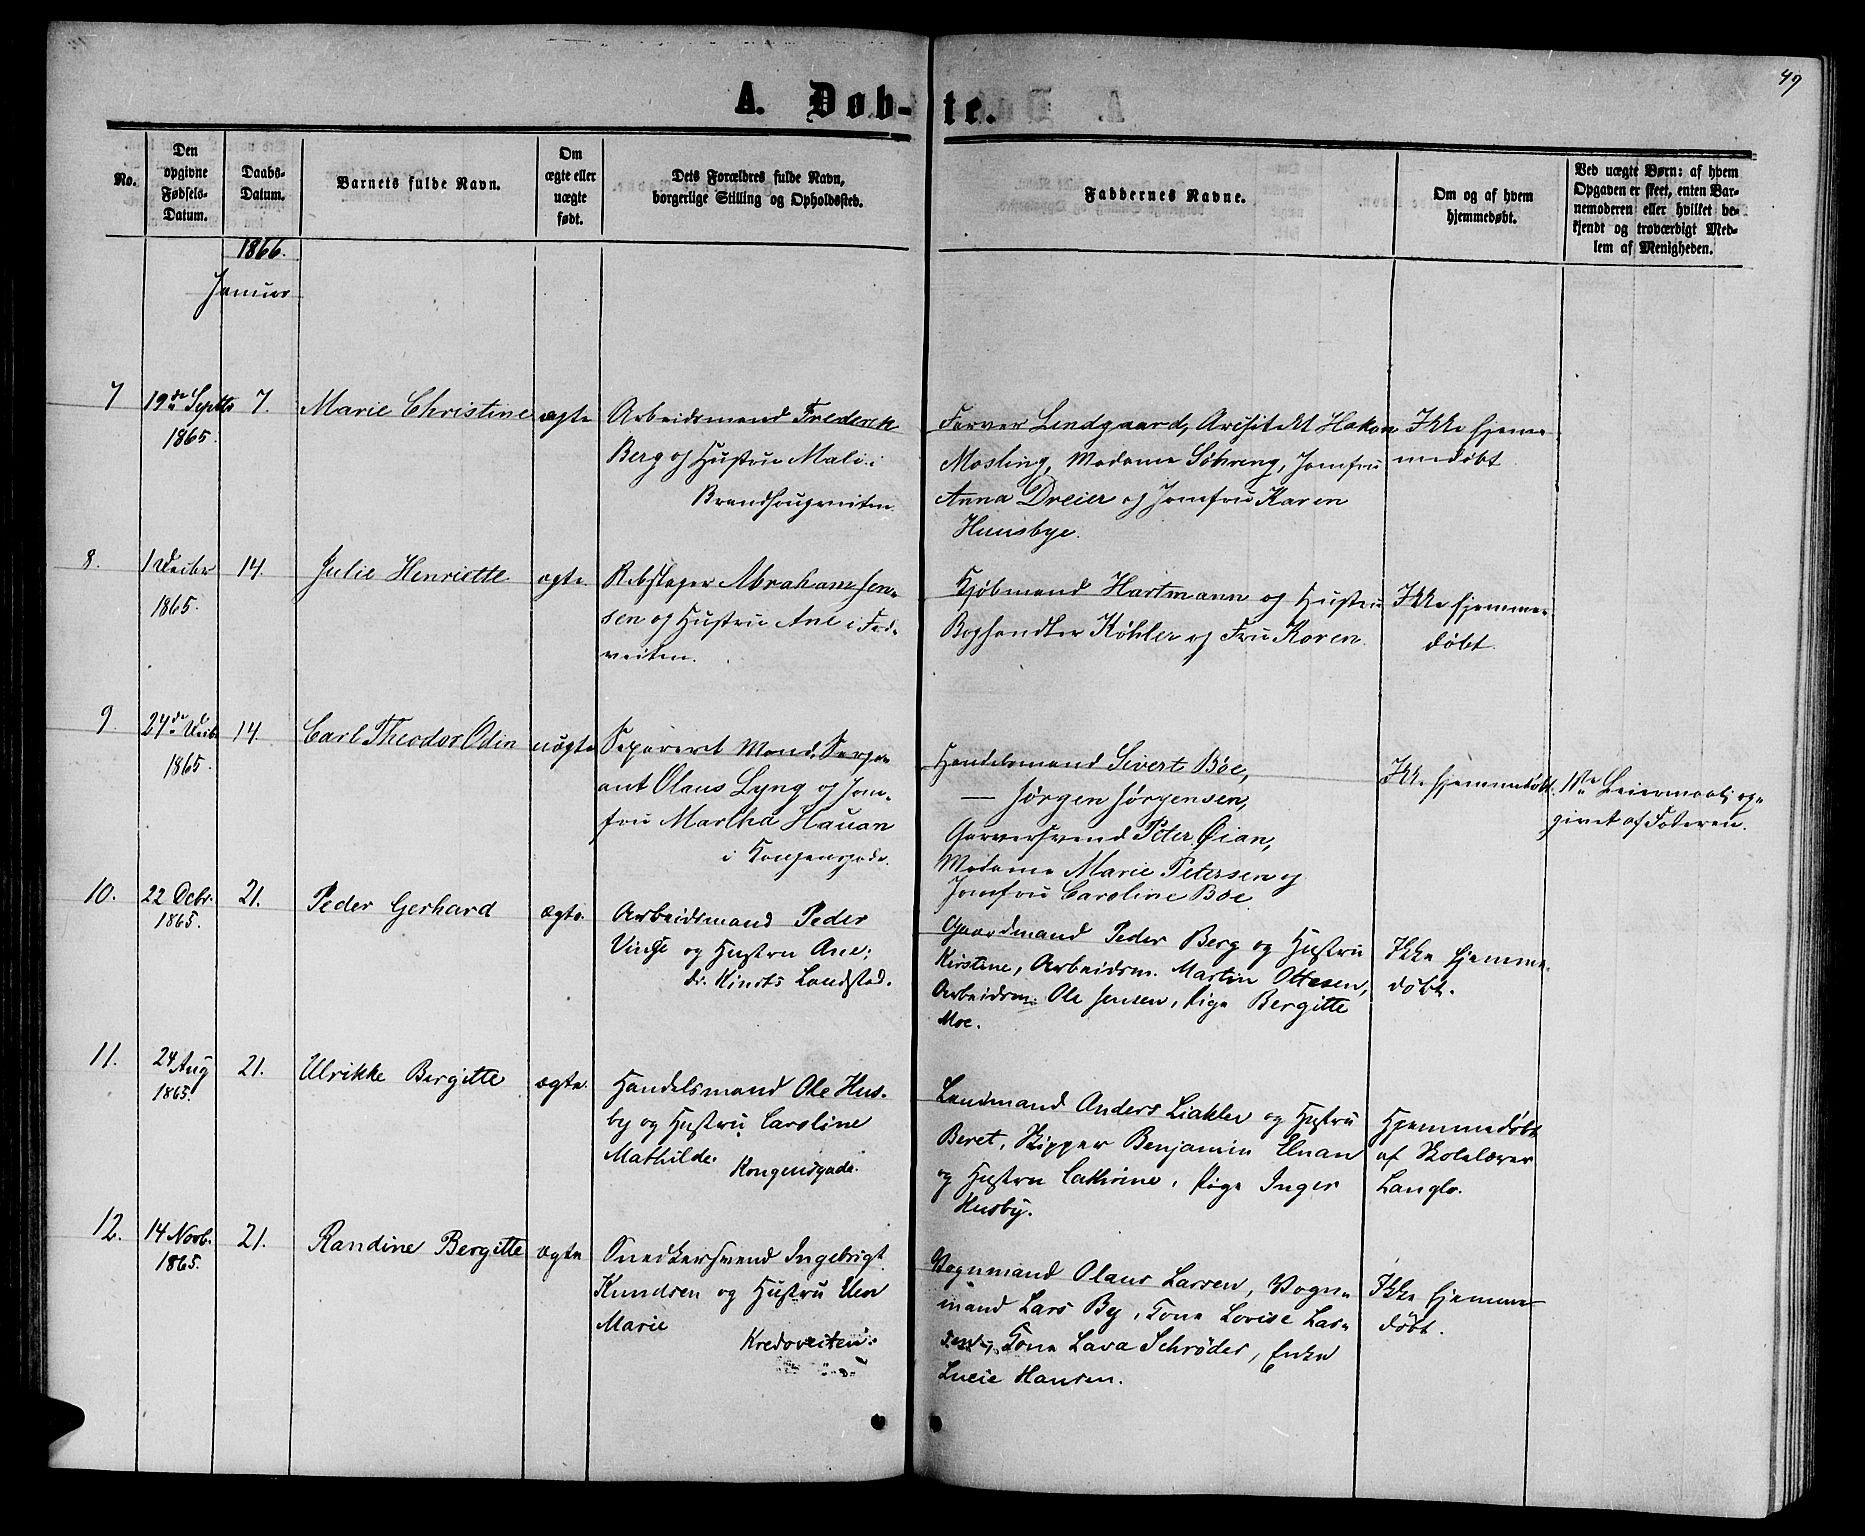 49
A. Døb-te.
No.
Den opgivne Fødsels-Datum.
Daabs-Datum.
Barnets fulde Navn.
Om ægte eller uægte født.
Dets Forældres fulde Navn, borgerlige Stilling og Opholdssted.
Faddernes Navne.
Om og af hvem hjemmedøbt.
Ved uægte Børn: af hvem Opgaven er skeet, enten Barnemoderen eller hvilket bekjendt og troværdigt Medlem af Menigheden.
1866.
Januar
7
19de Septbr
1865.
7.
Marie Christine
ægte
Arbeidsmand Frederik
Berg og Hustru Mali i
Farver Lindgaard, Architekt Hakon
Mosling, Madame Söhreng, Jomfru
Anna Dreier og Jomfru Karen
Huusbye.
Ikke hjem-
medøbt
8.
1 Decbr
1865.
14.
Julie Henriette
ægte.
Rebslager Abraham Jen-
sen og Hustru Ane i
veiten.
Kjøbmand Hartmann og Hustru
Boghandler Köhler og Fru Karen.
Ikke hjemme-
døbt.
9.
24de Decbr
1865.
14.
Carl Theodor Odin
uægte
Separeret Mand, Serge-
ant Olaus Lyng og Jom-
fru Martha Hauan
i Kongensgade.
Handelsmand Sivert Bøe,
— Jørgen Jørgensen,
Garversvend Peter Øian,
Madame Marie Petersen og
Jomfru Caroline Böe
Ikke hjemmedøbt.
1ste Leiermaal; op-
givet af Faderen.
10.
22 Decbr.
1865.
21.
Peder Gerhard
ægte.
Arbeidsmand Peder
Vinge og Hustru Ane;
Gaardmand Peder Berg og Hustru
Kirstine, Arbeidsm. Martin Ottesen,
Arbeidsm. Ole Jensen, Pige Bergitte
Moe.
Ikke hjemme-
døbt.
11.
24 Aug
1865.
21.
Ulrikke Bergitte
ægte.
Handelsmand Ole Hus-
by og Hustru Caroline
Mathilde. Kongensgade.
Lensmand Anders Liakler og Hustru
Beret, Skipper Benjamin Elnan
og Hustru Cathrine, Pige Inger
Husby.
Hjemmedøbt
af Skolelærer
Langlo.
12.
14 Novb.
1865.
21.
Randine Bergitte
ægte
Snedkersvend Ingebrigt
Knudsen og Hustru
Marie
Kredoveiten.
Vognmand Olaus Larsen, Vogn-
mand Lars By, Kone Lovise Lar-
sen, Kone Lava Schrøder, Enke
Lucie Hansen.
Ikke hjemme-
døbt.